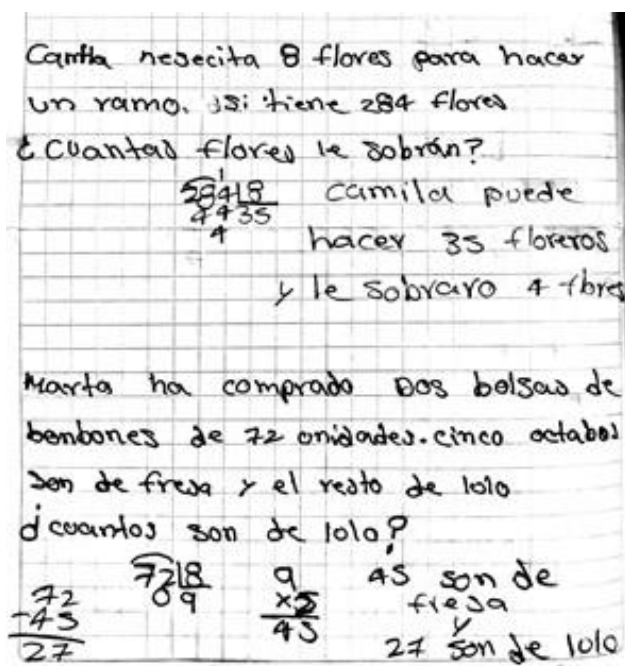 Camila nesecita 8 flores para hacer
un ramo. ¿Si tiene 284 flores
¿cuantas flores le sobran?
284 | 8 camila puede
44 35
4 hacer 35 floreros
y le sobraro 4 flores
Marta ha comprado Dos bolsas de
bonbones de 72 onidades. cinco octabos
son de fresa y el resto de lolo
¿cuantos son de lolo?
72 | 8 9 45 son de
72 0 9 x5 fresa
-45 45 y
27 27 son de lolo